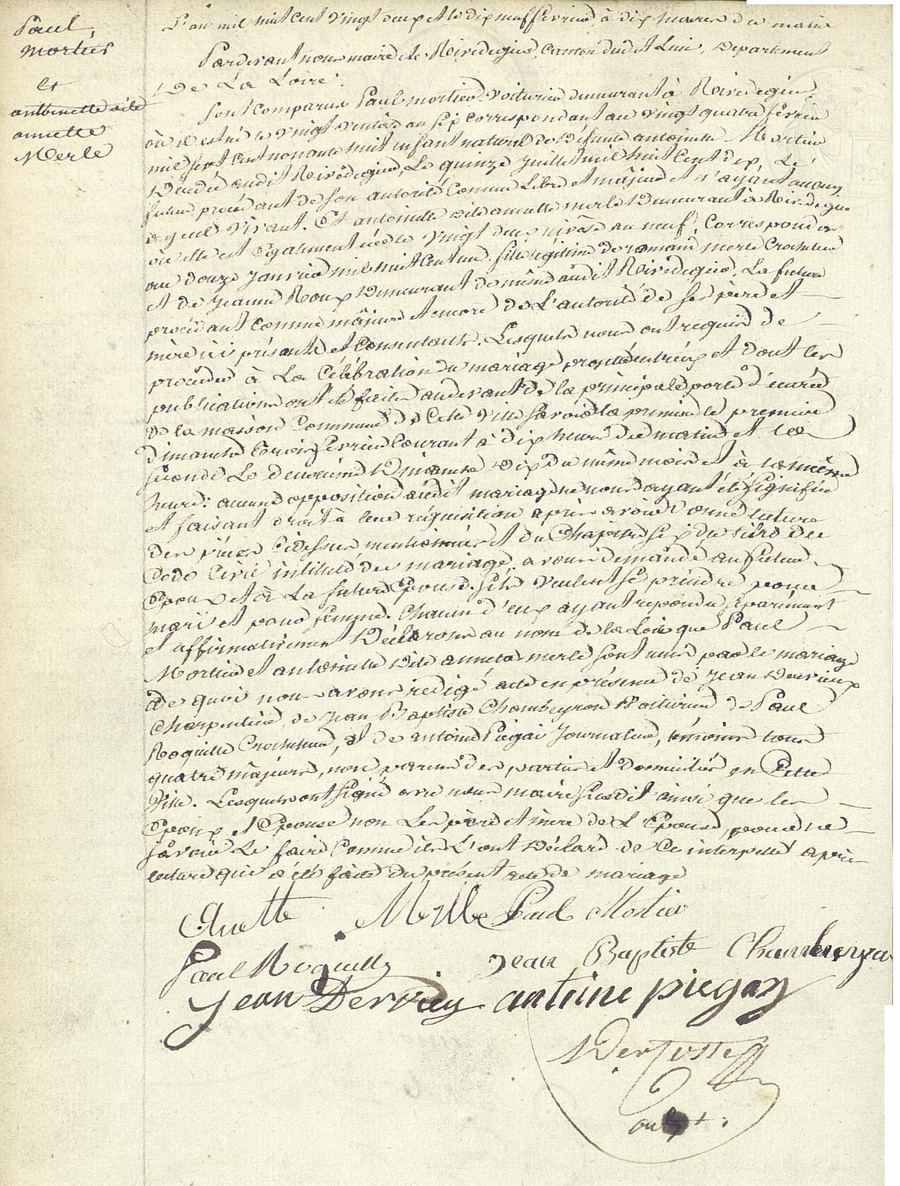 Paul
Mortier
et
antoinette dite
annette
Merle
L'an mil huit cent vingt deux et le dix neuf février à dix heures du matin
Pardevant nous maire de Rivedegier Canton dudit Lieu, Département
De La Loire.
Sont Comparus Paul mortier voiturier demeurant à Rivedegier
où il est né le vingt ventôse an six correspondant au vingt quatre février
mil sept cent nonante huit enfant naturel de défunte antoinette Mortier
Décédée audit Rivedegier, Le quinze Juillet mil huit cent dix, Le
futur procédant de son autorité Comme Libre et majeur et n'ayant aucun
ayeul vivant. Et antoinette dite annette merle Demeurant à Rivedegier
où elle est Également née le vingt deux nivôse an neuf, Correspondant
au douze Janvier mil huit cent un. fille légitime de romain merle Crocheteur
et de Jeanne Roux Demeurant de même audit Rivedegier. La future
procédant comme majeure et encore de L'autorité de ses père et
mère ici présents et Consentants. Lesquels nous ont requis de
procéder à La Célébration du mariage projetté entr'eux et dont les
publications ont été faites au devant de la principale porte d'entrée
de la maison Commune de Cette ville savoir la première le premier
Dimanche trois février Courant à dix heures du matin et la
seconde Le deuxième Dimanche dix du même mois et à la même
heure: aucune opposition audit mariage ne nous ayant été signifiée
et faisant droit à leur réquisition après avoir donné lecture
des pièces cidessus mentionnées et du Chapitre six du titre du
Code Civil intitulé du mariage. avons demandé au futur
Epoux et à La future Epouse. S'ils veulent se prendre pour
mari et pour femme. Chacun d'eux ayant répondu séparément
et affirmativement Déclarons au nom de la Loi que Paul
Mortier et antoinette Dite annette merle sont unis par le mariage
de quoi nous avons rédigé acte en présence de Jean Dervieux
Charpentier, de Jean Baptiste Chambeyron Voiturier de Paul
Roquille Crocheteur, et de antoine Piégay Journalier, témoins tous
quatre majeurs, non parens des parties et domiciliés en Cette
ville. Lesquels ont signé avec nous maire susdit ainsi que les
Epoux et Epouse non Les père et mère de L'Epouse, pour ne
savoir Le faire Comme ils L'ont Déclaré de Ce interpellés après
lecture que a été faite du présent acte de mariage
Anette Merlle Paul Mortier
Paul Roquille Jean Baptiste Chambeyron
Jean Dervieu antoine piegay